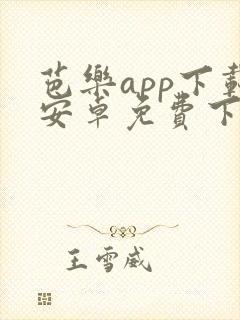 芭樂app下載
安卓免費下
王雪威